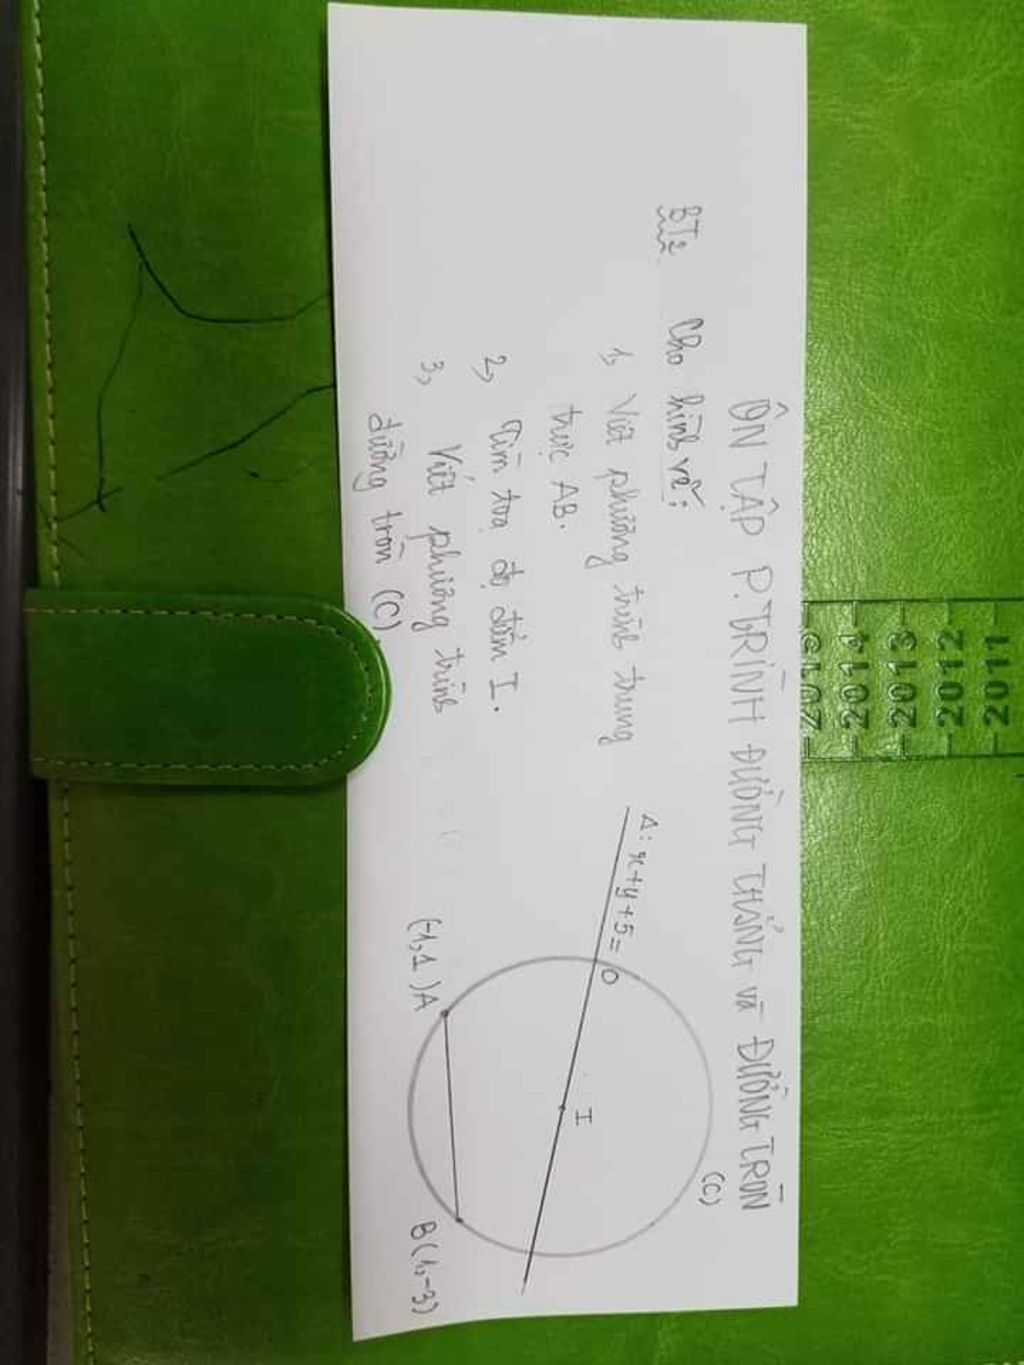 ÔN TẬP P.TRÌNH ĐƯỜNG THẲNG và ĐƯỜNG TRÒN
BT2 Cho hình vẽ:
1, Viết phương trình trung
trực AB.
2, Tìm toạ độ điểm I.
3, Viết phương trình
đường tròn (C)
Δ: x+y+5=0
(C)
I
(-1,1)A
B(1,-3)
2011
2012
2013
2014
2015